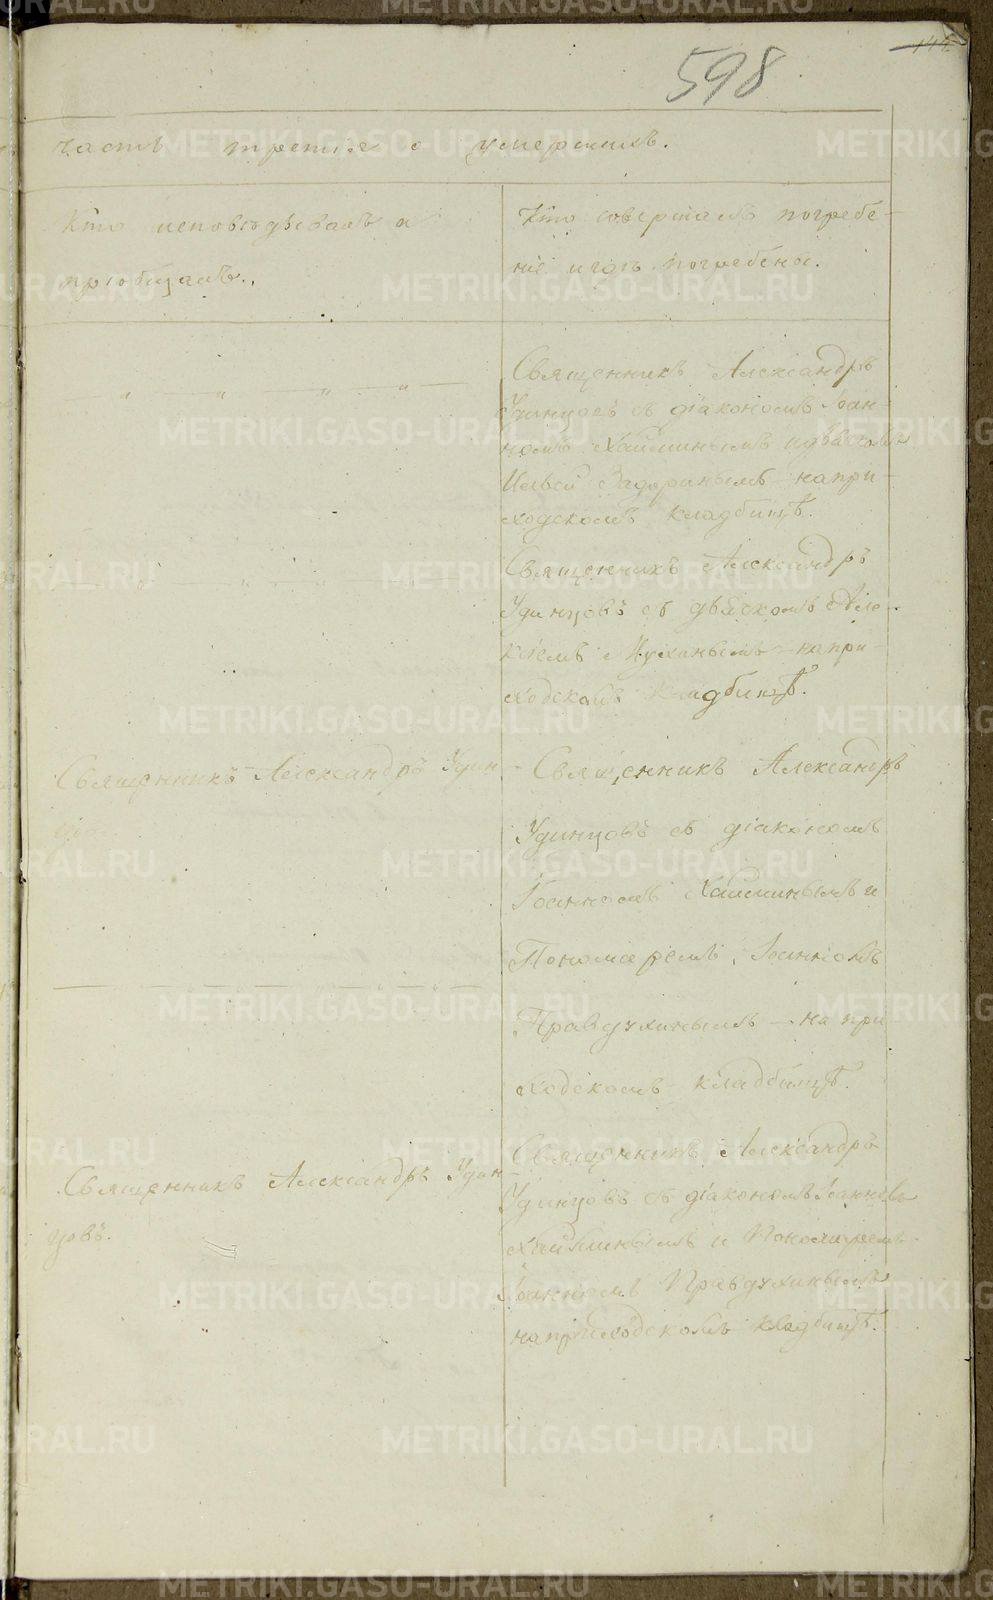 598
Часть третія о умершихъ.
Кто исповѣдывалъ и
пріобщалъ.
Кто совершалъ погребе-
ніе и гдѣ погребены.
Священникъ Александръ
Удинцовъ съ діакономъ Іоан-
номъ Хайминымъ и
Ильей Задоринымъ на при-
ходскомъ кладбищѣ.
Священникъ Александръ
Удинцовъ съ дьячкомъ Але-
ксѣемъ на при-
ходскомъ кладбищѣ.
Священникъ Александръ Удин-
цовъ.
Священникъ Александръ
Удинцовъ съ діакономъ
Іоанномъ Хайминымъ и
Пономаремъ Іоанномъ
Правдухинымъ на при
ходскомъ кладбищѣ.
Священникъ Александръ Удин-
цовъ.
Священникъ Александръ
Удинцовъ съ діакономъ Іоанномъ
Хайминымъ и Пономаремъ
Іоанномъ Правдухинымъ
на приходскомъ кладбищѣ.
METRIKI.GASO-URAL.RU